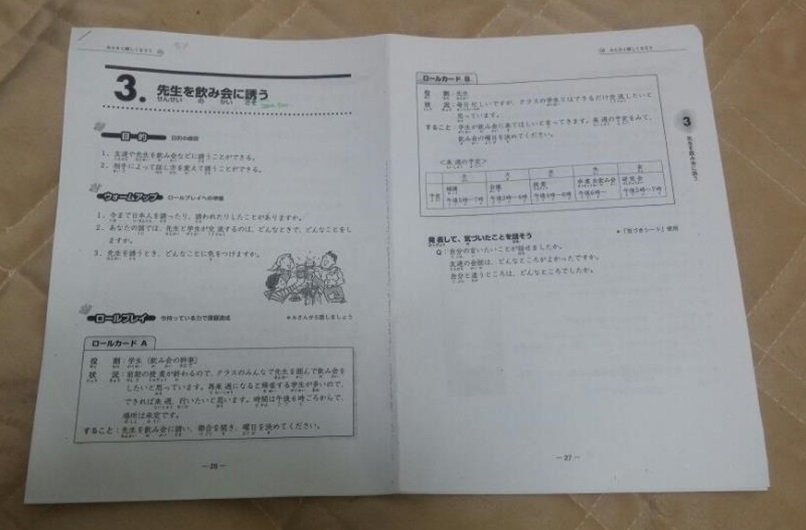 3. 先生を飲み会に誘う
せんせい の かい さそ
目的 目的の確認
1．友達や先生を飲み会などに誘うことができる。
2．相手によって話し方を変えて誘うことができる。
ウォームアップ ロールプレイへの準備
1．今まで日本人を誘ったり、誘われたりしたことがありますか。
2．あなたの国では、先生と学生が交流するのは、どんなときで、どんなことをし
ますか。
3．先生を誘うとき、どんなことに気をつけますか。
ロールプレイ 今持っている力で課題達成
ロールカード A
役 割：学生（飲み会の幹事）
状 況：前期の授業が終わるので、クラスのみんなで先生を囲んで飲み会を
したいと思っています。再来週になると帰省する学生が多いので、
できれば来週、行いたいと思います。時間は午後6時ごろからで、
場所は未定です。
すること：先生を飲み会に誘い、都合を聞き、曜日を決めてください。
－26－
ロールカード B
役 割：先生
状 況：毎日忙しいですが、クラスの学生とはできるだけ交流したいと
思っています。
すること：学生が飲み会に来てほしいと言ってきます。来週の予定をみて、
飲み会の曜日を決めてください。
＜来週の予定＞
月 火 水 木 金
予定
会議 授業 卒業生飲み会 研究会
午後6時～ 午後5時～7時
発表して、気づいたことを話そう
＊「気づきシート」使用
Q：自分の言いたいことが話せましたか。
友達の会話は、どんなところがよかったですか。
自分と違うところは、どんなところでしたか。
3
先生を飲み会に誘う
－27－